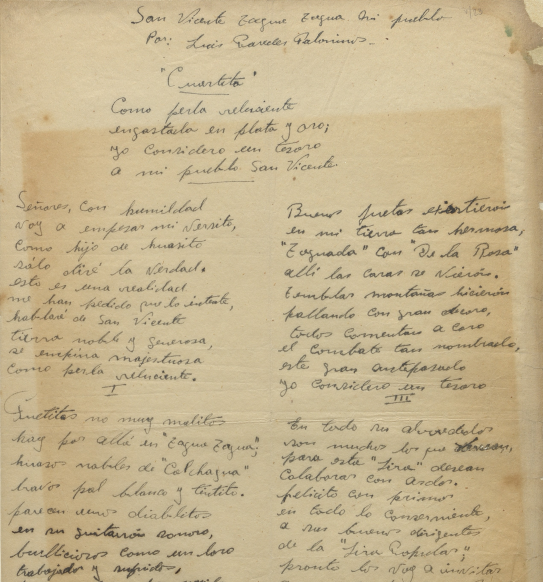 San Vicente Tagua Tagua mi pueblo
Por: Luis Paredes Palominos.
"Cuarteta"
Como perla reluciente
engastada en plata y oro;
yo considero un tesoro
a mi pueblo San Vicente.
Señores, con humildad
voy a empezar mi versito,
como hijo de huasito
sólo diré la verdad.
esto es una realidad
me han pedido que lo intente,
hablaré de San Vicente
tierra noble y generosa,
se empina majestuosa
como perla reluciente.
I
Puetitos no muy malitos
hay por allá en "Tagua Tagua",
huasos nobles de "Colchagua"
bravos pal blanco y tintito.
parecen unos diablitos
en su guitarrón sonoro,
bulliciosos como un loro
trabajados y sufridos,
Buenos puetas existieron
en mi tierra tan hermosa,
"Taguada" con "De la Rosa"
allí las caras se vieron.
temblar montañas hicieron
pallando con gran decoro,
todos comentan a coro
el combate tan nombrado,
este gran antepasado
yo considero un tesoro
III
En todo sus alrrededolos
son muchos los que
para esta "Lira" desean
colaborar con
felicito con
en todo lo concerniente,
a sus buenos dirigentes
de la "Lira Popular";
pronto los voy a invitar